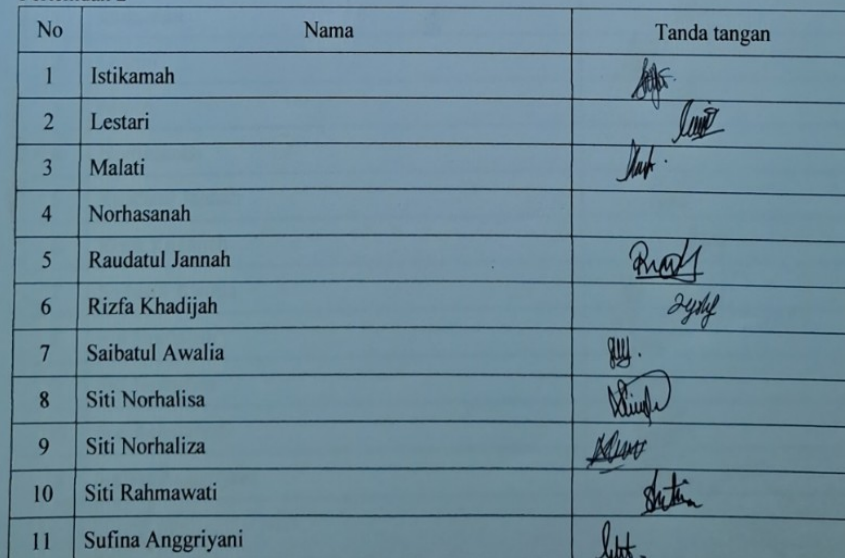 No Nama Tanda tangan
1 Istikamah
2 Lestari
3 Malati
4 Norhasanah
5 Raudatul Jannah
6 Rizfa Khadijah
7 Saibatul Awalia
8 Siti Norhalisa
9 Siti Norhaliza
10 Siti Rahmawati
11 Sufina Anggriyani